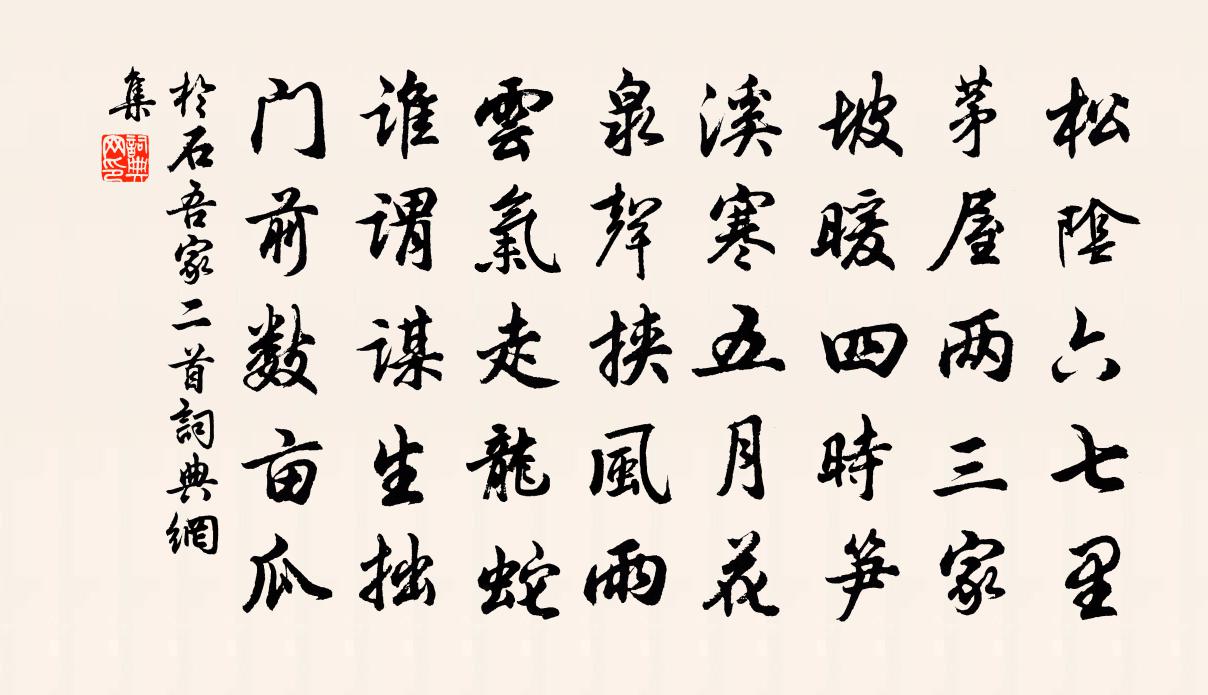 松陰六七里
茅屋两三家
坡暖四時笋
溪寒五月花
泉聲挾風雨
雲氣走龍蛇
谁谓谋生拙
门前数亩瓜
於石吾家二首詞典網
集
詞典
网印